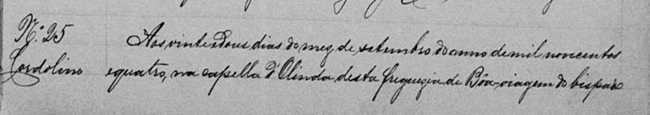 Nº 25 Aos vinte e dous dias do mez de setembro do anno de mil novecentos
Lordolino e quatro, na capella d'Olinda desta freguezia de Bôa-viagem do bispado